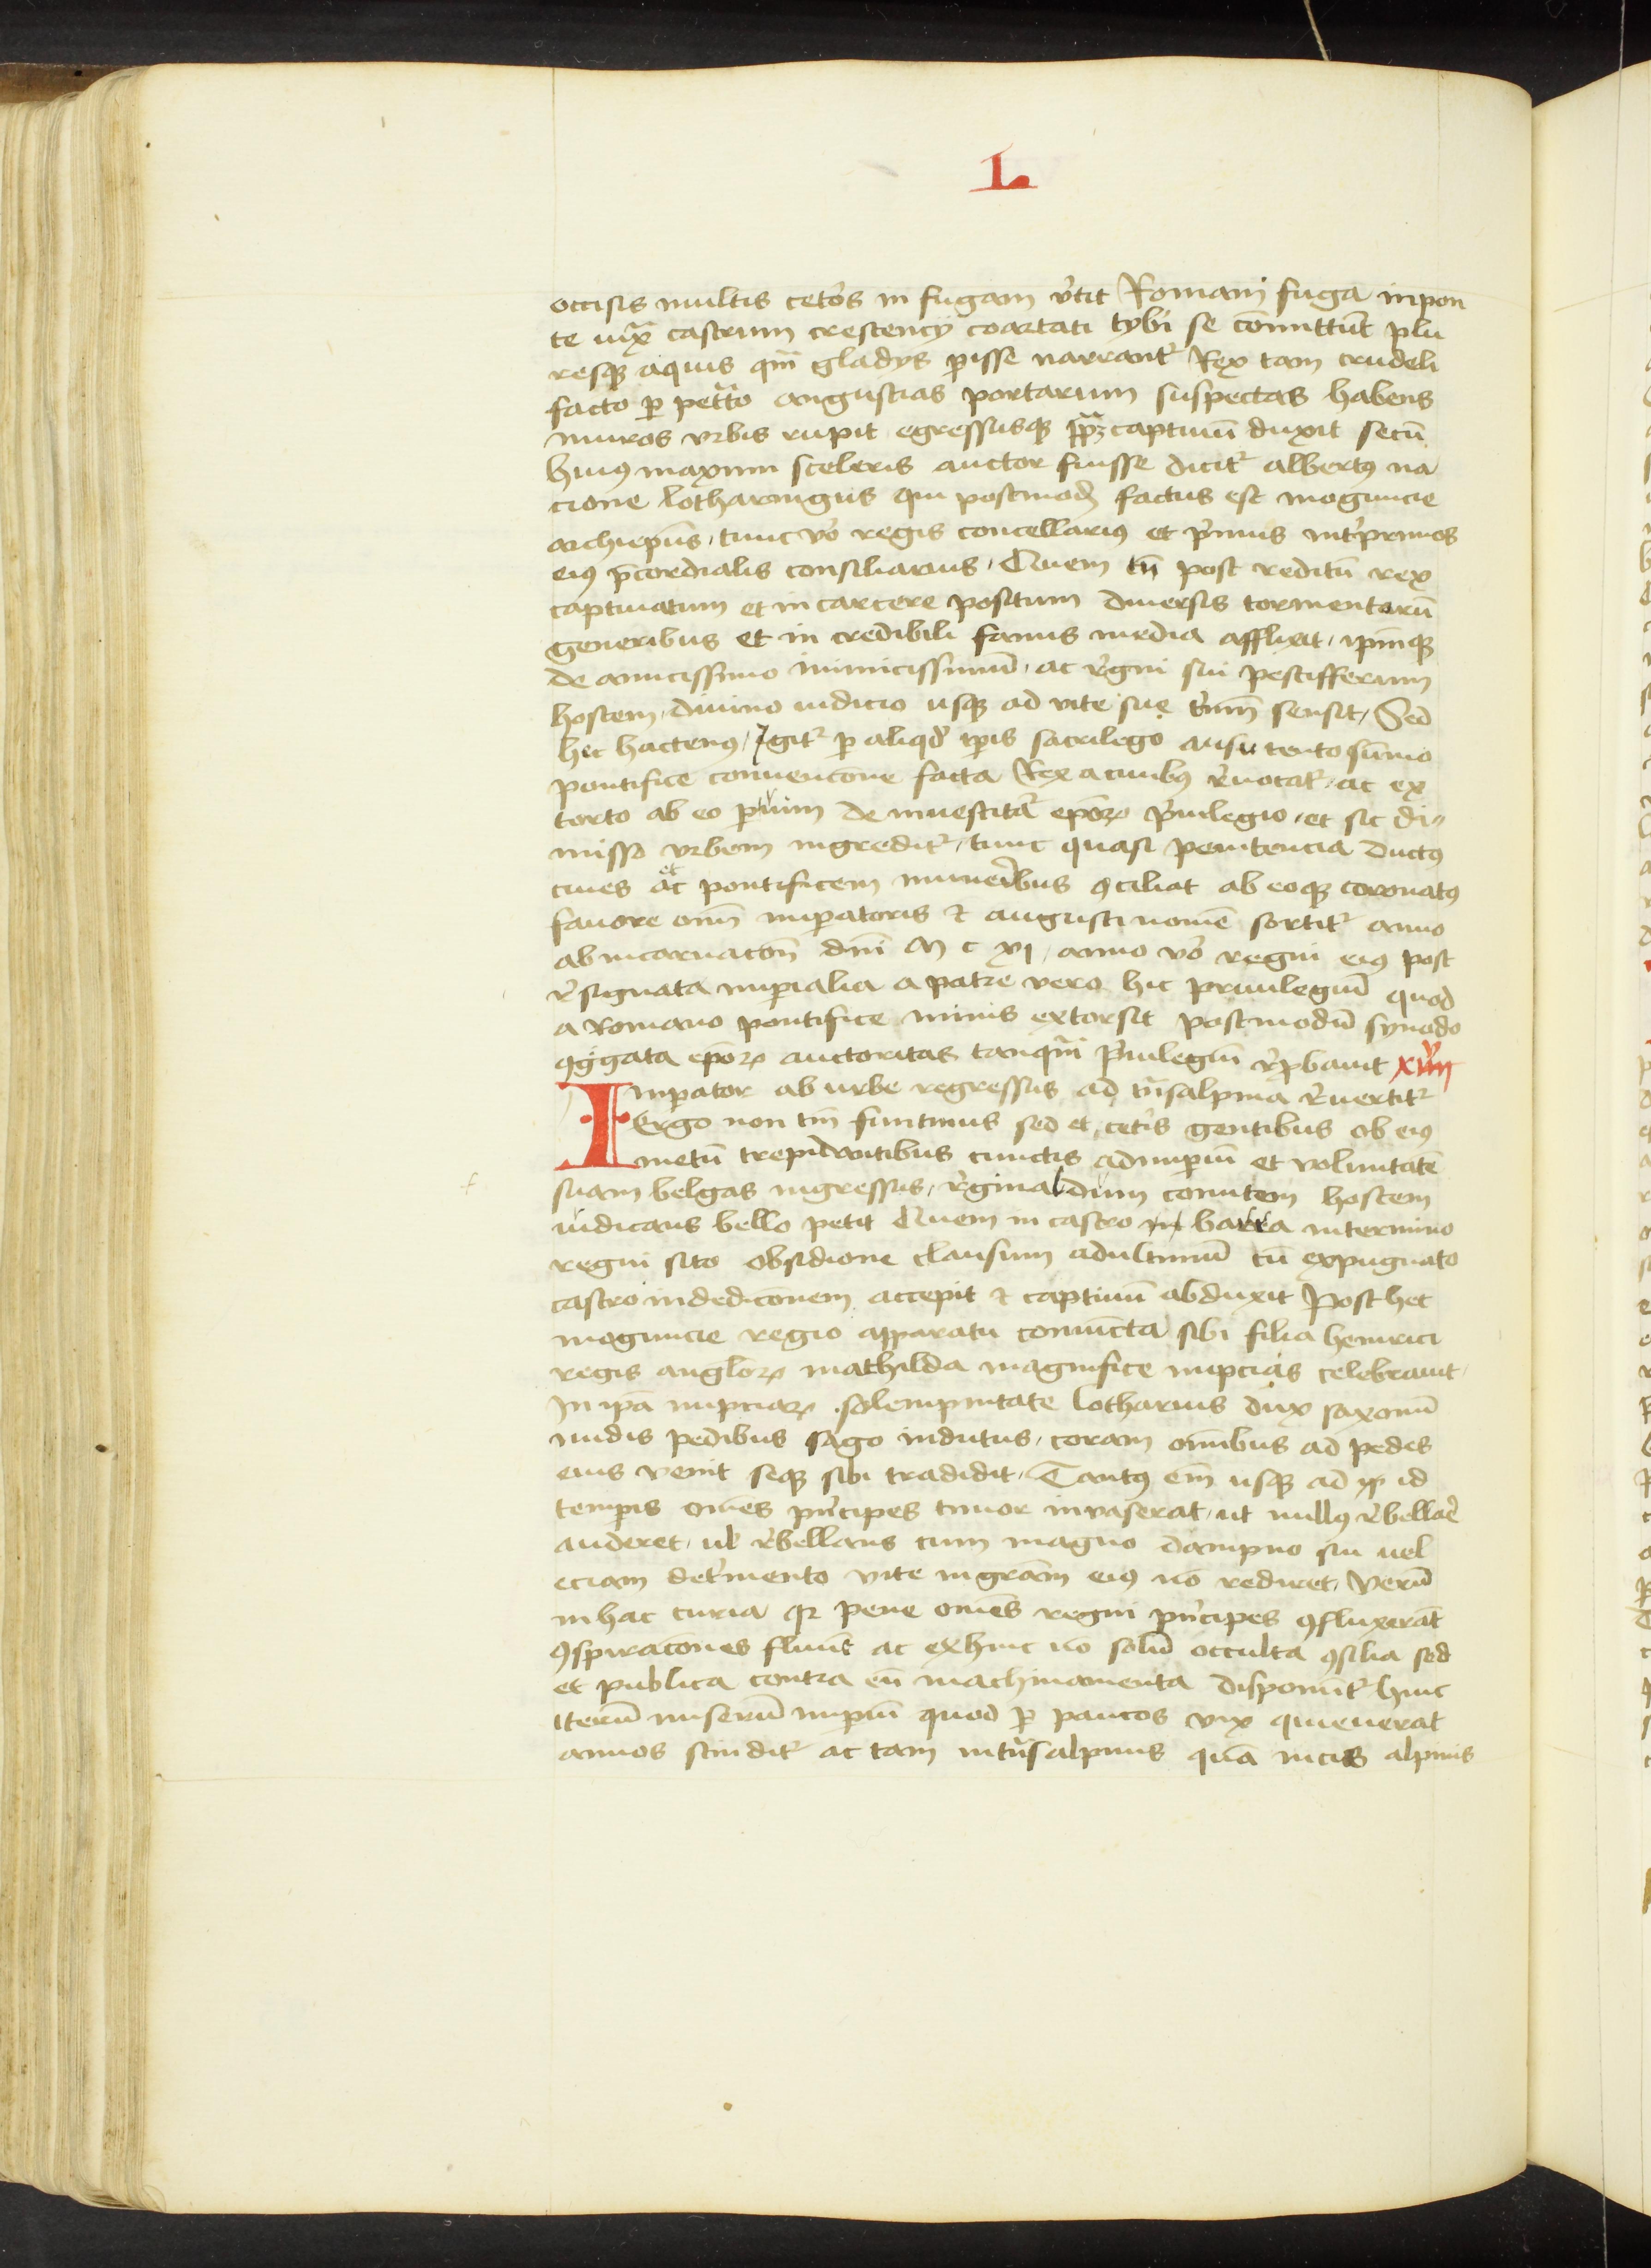 L
occisis multis cetos in fugam vtit Romani fuga in pon
te iux castrum crestencij coartati tybi se comittut plu
resq aquis qm gladijs pisse narrant Rex tam crudeli
facto p petrato angustias portarum suspectas habens
muros vrbis rupit egressusq papa captiuu duxit secu
huius maximi sceleris auctor fuisse dicit albertus na
cione lotharingus qui postmod factus est moguncie
archiepus, tunc vo regis concellarius et pmus int primos
eius pcordialis consiliarius, Quem tn post reditu rex
captiuatum et in carcere positum diuersis tormentoru
generibus et in credibili famis media afflixit, ipmq
de amicissimo inimicissimu, ac regni sui pestifferum
hostem, diuino iudicio usq ad vite sue tmm sensit, Sed
hec hactenus, Igit p aliqd ipis sacrilego ausu tento sumo
pontifice conuencone facta Rex a ciuibus reuocat, ac ex
torto ab eo priuim de inuestita epor priuilegio, et sic di-
misso vrbem ingredit, tunc quasi penitencia ductus
ciues et ac pontificem muneribus conciliat ab eoq coronatus
fauore omi imperatoris et augusti nome sortit anno
ab incarnacon dni M c xi, anno vo regni eius post
resignata imperialia a patre vero hic priuilegiu quod
a Romano pontifice minis extorsit postmodu synodo
congregata epor auctoritas tanqm priuilegiu reprobauit xviij
Imperator ab urbe regressus ad transalpina reuertit
Ergo non tm finitimis sed et ceteris gentibus ob eius
metu trepidantibus cunctis ad imperiu et voluntate
suam belgas ingressus, reginaldum comitem hostem
iudicans bello petit Quem in castro barra in termino
regni sito obsidione clausum ad ultimu tu expugnato
castro in dedicionem accepit et captiuu abduxit Post hec
moguncie regio apparatu coniuncta sibi filia heinrici
regis anglor mathilda magnifice nupcias celebrauit,
In ipa nupciar solempnitate lotharius dux saxonu
nudis pedibus sago indutus, coram omibus ad pedes
eius venit seq sibi tradidit, Tantus em usq ad id
tempis omes principes timor inuaserat, ut nullus rebellare
auderet, ul rebellans cum magno dampno sui uel
eciam detrimento vite in gram eius no rediret, Veru
in hac curia qr pene omes regni principes confluxerat
conspiracones fluut ac exhinc no solu occulta consilia sed
et publica contra eu machinamenta disponut hinc
Iteru miseru imperiu quod p paucos vix quieuerat
annos scindit ac tam in transalpinis qua in cis alpinis